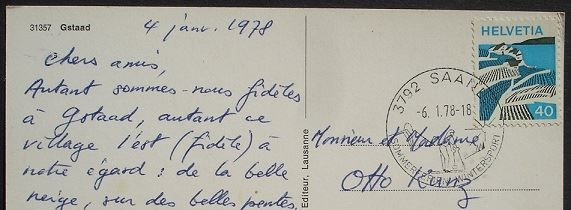 31357 Gstaad
4 janv. 1978
Chers amis,
Autant sommes-nous fidèles
à Gstaad, autant ce
village l'est (fidèle) à
notre égard : de la belle
neige, sur des belles pentes,
Editeur, Lausanne
HELVETIA
40
3792 SAANEN
-6.1.78-18
SOMMER WINTERSPORT
Monsieur et Madame
Otto